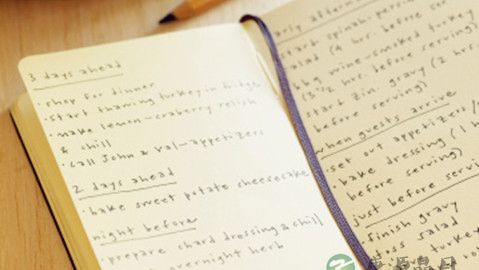 3 days ahead
· shop for dinner
· start thawing turkey in fridge
· make lemon-cranberry relish
& chill
· call John & Val-appetizers
2 days ahead
· bake sweet potato cheesecake
night before
· prepare chard dressing & chill
overnight herb
early afternoon
start spinach-persi
salad (4 hrs. before ser
bbq wine-smoked turkey
(3½ hrs. before serving)
start zin. gravy (2 hrs.
before serving)
when guests arrive
· set out appetizers /
· bake dressing (1 h
before serving)
just before servi
· finish gravy
toss salad
turkey